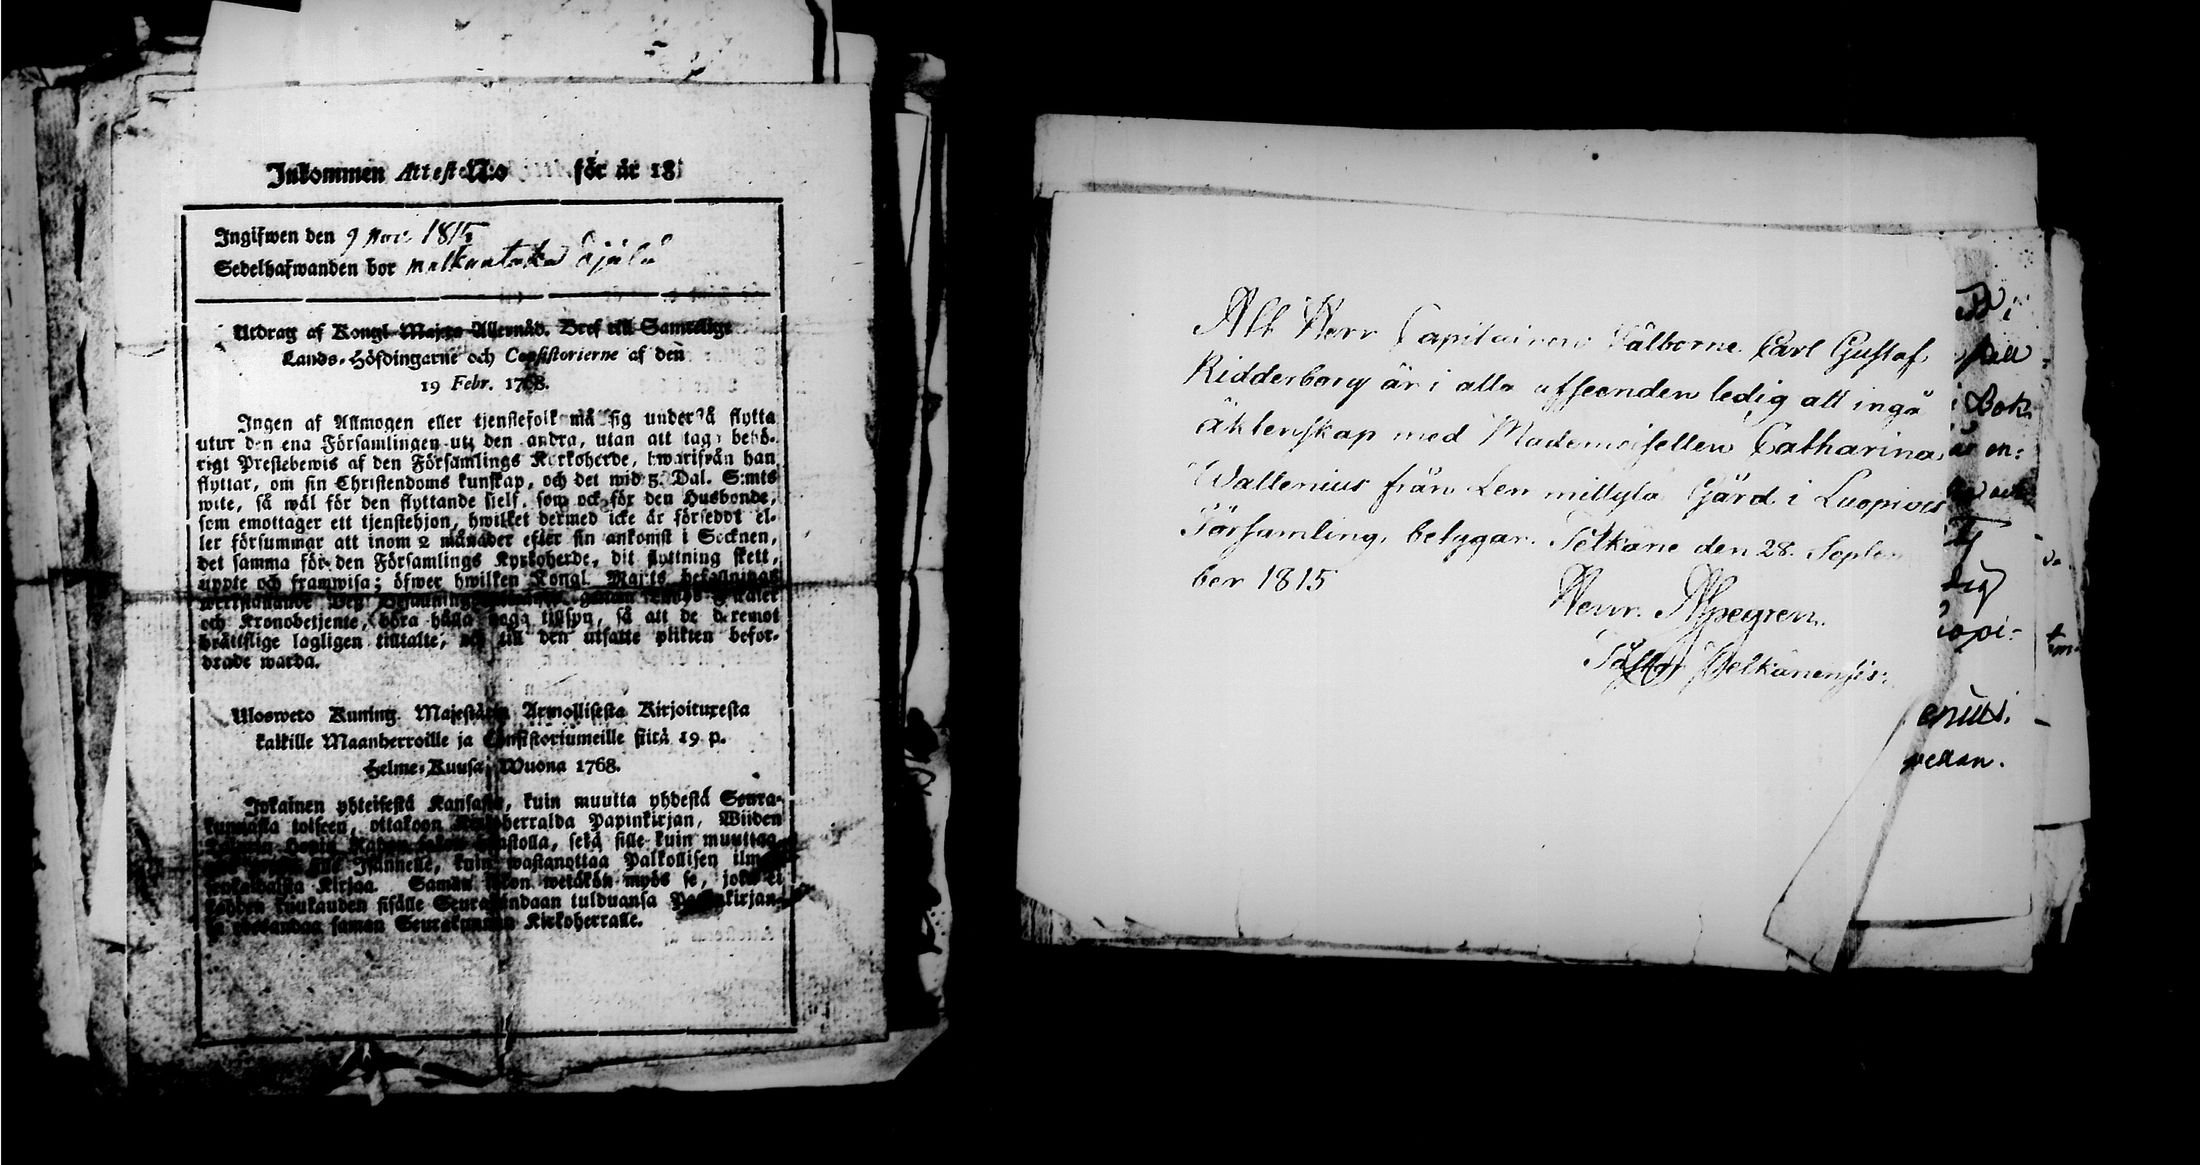 Inkommen Attest N:o för år 18
Ingifwen den 9 Nov: 1815
Sedelhafwanden bor
Utdrag af Kongl Majts Allernåd. Bref till Samtelige
Lands-Höfdingarne och Consistorierne af den
19 Febr. 1768.
Ingen af Allmogen eller tjenstefolk må sig understå flytta
utur den ena Församlingen uti den andra, utan att taga behö-
rigt Prestebewis af den Församlings Kyrkoherde, hwarifrån han
flyttar, om sin Christendoms kunskap, och det wid 5. Dal. S:mts
wite, så wäl för den flyttande sielf, som ock för den Husbonde,
som emottager ett tjenstehjon, hwilket dermed icke är försedt el-
ler försummar att inom 2 månader efter sin ankomst i Socknen,
det samma för den Församlings Kyrkoherde, dit flyttning skett,
uppte och framwisa; öfwer hwilken Kongl. Majts befallnings
och Kronobetjente, böra hålla noga tillsyn, så att de deremot
brättslige lagligen tilltalte, och till den utsatte plikten befor-
drade warda.
Ulosweto Kuning. Majestätin Armollisesta Kirjoituxesta
kaikille Maanherroille ja Consistoriumeille siitä 19 p.
Helme-Kuusa Wuona 1768.
Jokainen yhteisestä Kansasta, kuin muutta yhdestä Seura-
kunnasta toiseen, ottakoon Kirkoherralda Papinkirjan, Wiiden
Talarin Hopia Rahan sakon uhastolla, sekä sille kuin muuttaa
Isännelle, kuin wastanottaa Palkollisen ilman
Kirjaa. Saman sakon wetäkön myös se, joka ei
kahden kuukauden sisälle Seurakundaan tulduansa Papinkirjan-
sa saman Seurakunnan Kirkoherralle.
Att Herr Capitainen Välborne Carl Gustaf
Ridderborg är i alla afseenden ledig att ingå
äktenskap med Mademoisellen Catharina
Wallenius från Lenmittylä Gård i Luopiois
Församling, betygar. Pelkäne den 28. Septem
ber 1815
Henr. Ahlgren.
Pastor Pelkänensis.